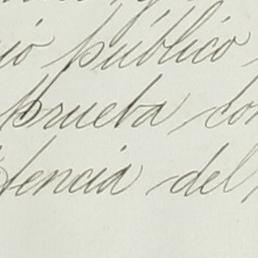 io público
prueba con
tencia del